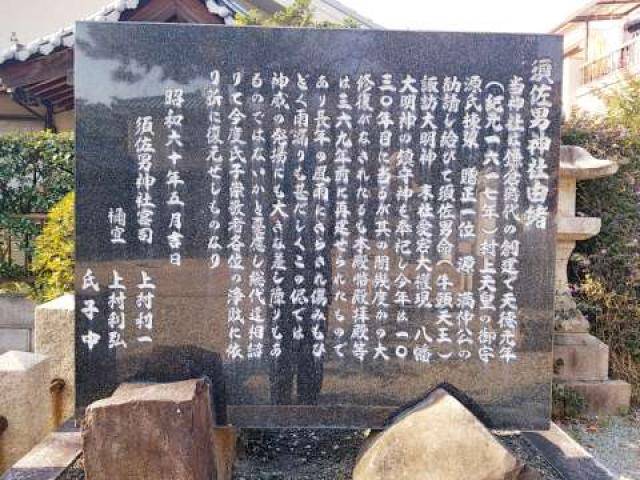 須佐男神社由緒
当神社は鎌倉時代の創建で天徳元年
(紀元一六一七年)村上天皇の御宇
源氏棟梁 贈正一位 源 満仲公の
勧請し給びて須佐男命(牛頭天王)
諏訪大明神 末社愛宕大権現 八幡
大明神の鎮守神を奉祀し今年は一〇
三〇年目に当るが其の間幾度かの大
修復がなされたるも本殿幣殿拝殿等
は三六九年前に再建せられたもので
あり長年の風雨にさらされ傷みもひ
どく雨漏りも甚だしくこの侭では
神威の発揚にも大きな差し障りもあ
るものではないかと憂慮し総代達相諮
りて今度氏子崇敬者各位の浄財に依
り新に復元せしものなり
昭和六十年五月吉日
須佐男神社宮司 上村村一
禰宜 上村利弘
氏子中